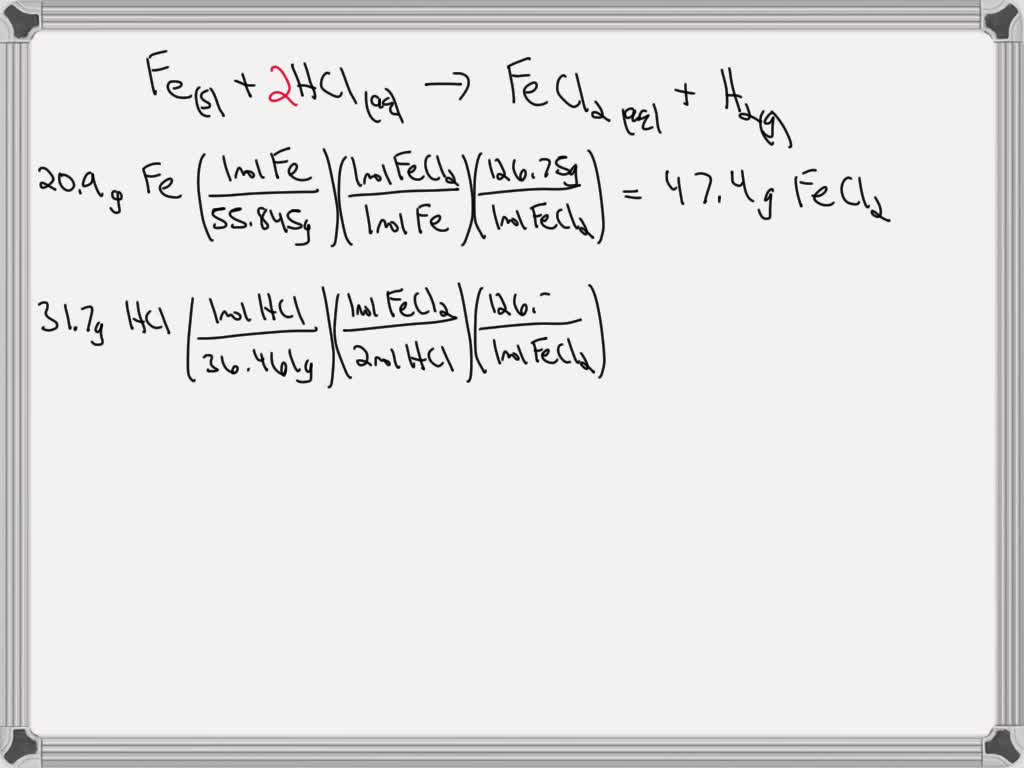 Fe(s) + 2HCl(aq) → FeCl2(aq) + H2(g)
20.9g Fe (1mol Fe/55.845g)(1mol FeCl2/1mol Fe)(126.75g/1mol FeCl2) = 47.4g FeCl2
31.7g HCl (1mol HCl/36.461g)(1mol FeCl2/2mol HCl)(126.-/1mol FeCl2)